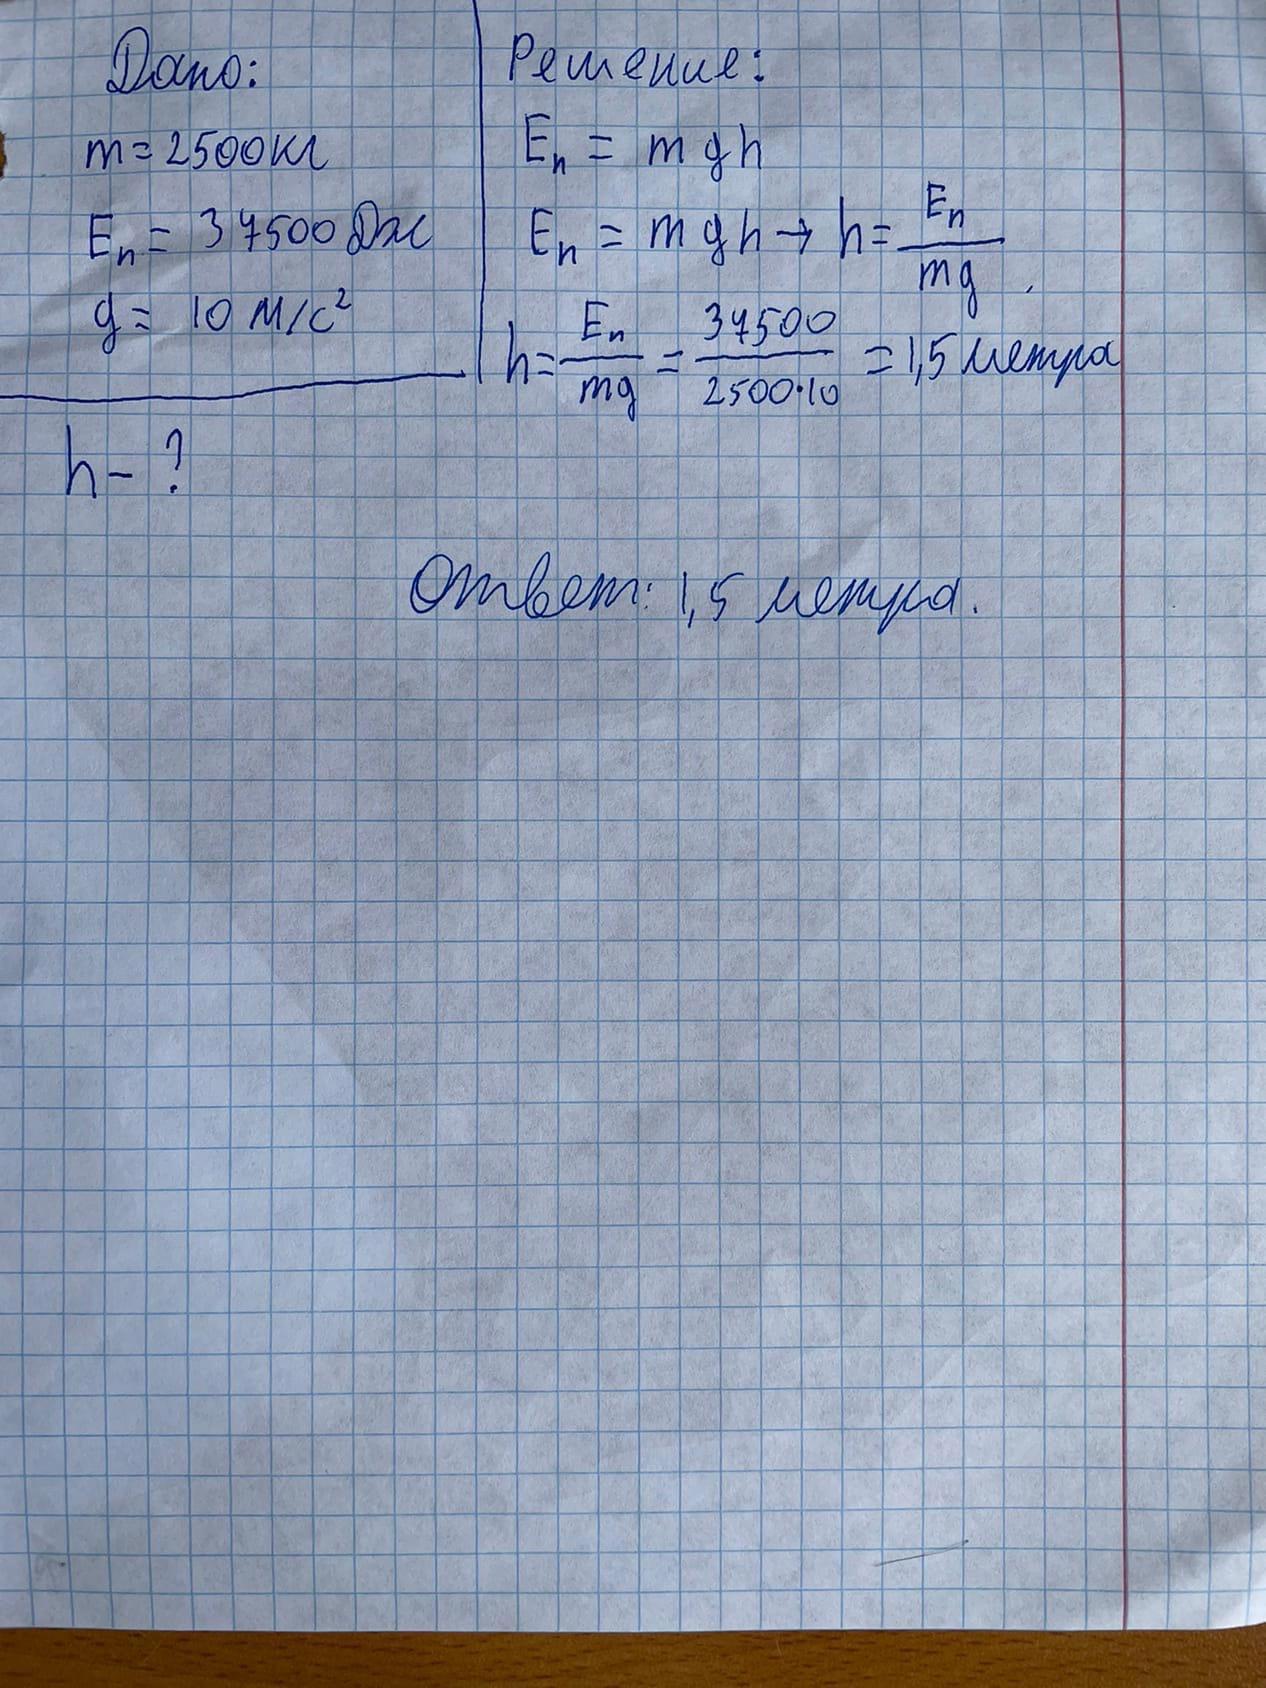 Дано:
m = 2500 кг
Eп = 37500 Дж
g = 10 м/с²
h - ?
Решение:
Eп = mgh
Eп = mgh → h = Eп/mg
h = Eп/mg = 37500/2500·10 = 1,5 метра
Ответ: 1,5 метра.